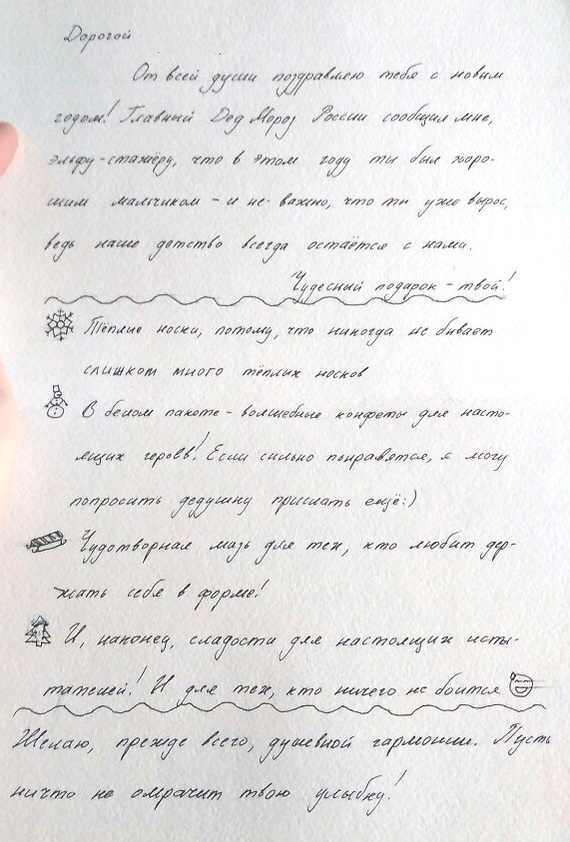 Дорогой
От всей души поздравляю тебя с новим
годом! Главный Дед Мороз России сообщил мне,
эльфу-стажёру, что в этом году ты был хоро-
шим мальчиком - и не важно, что ты уже вырос,
ведь наше детство всегда остаётся с нами.
Чудесный подарок - твой!
Тёплые носки, потому, что никогда не бывает
слишком много тёплых носков
В белом пакете - волшебные конфеты для насто-
ящих героев! Если сильно понравятся, я могу
попросить дедушку прислать ещё:)
Чудотворная мазь для тех, кто любит дер-
жать себя в форме!
И, наконец, сладости для настоящих испы-
тателей! И для тех, кто ничего не боится
Желаю, прежде всего, душевной гармонии. Пусть
ничто не омрачит твою улыбку!